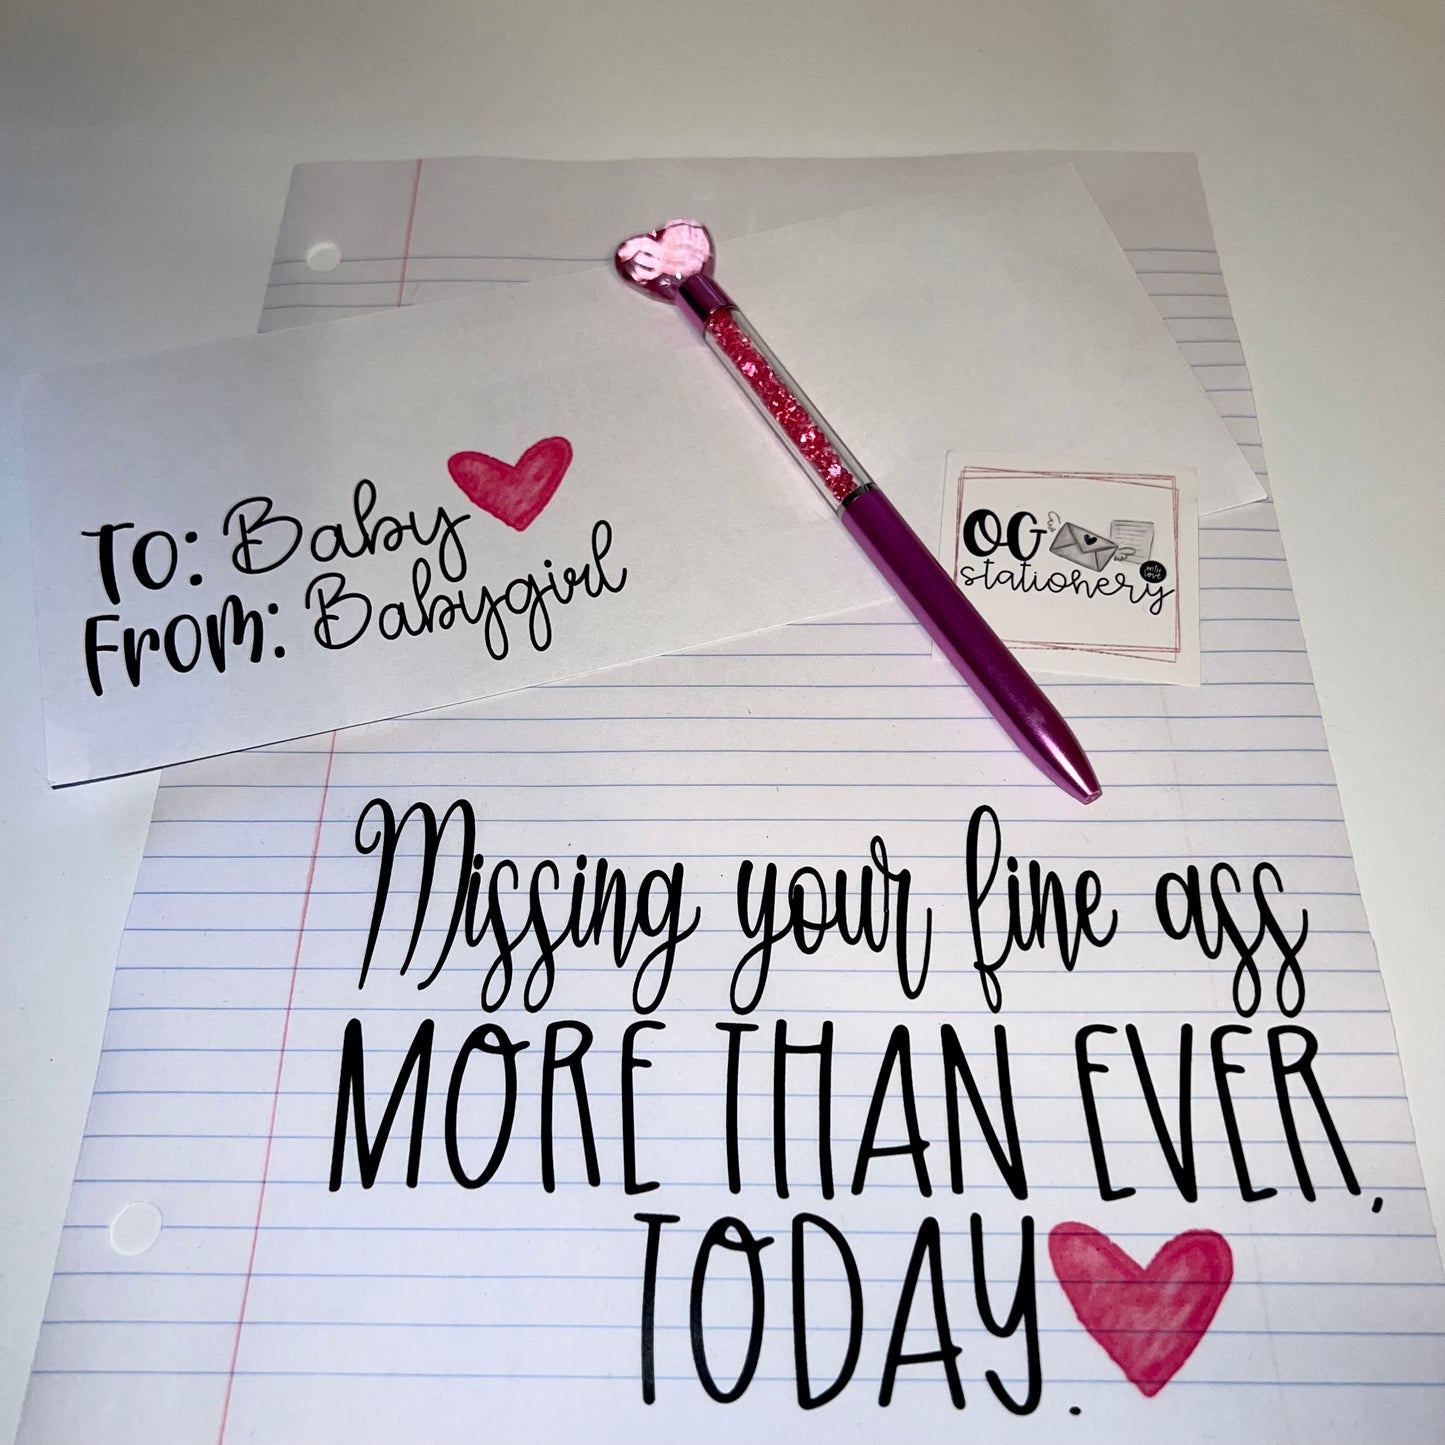 To: Baby
From: Babygirl
OG
stationery
with
love
Missing your fine ass
MORE THAN EVER,
TODAY.